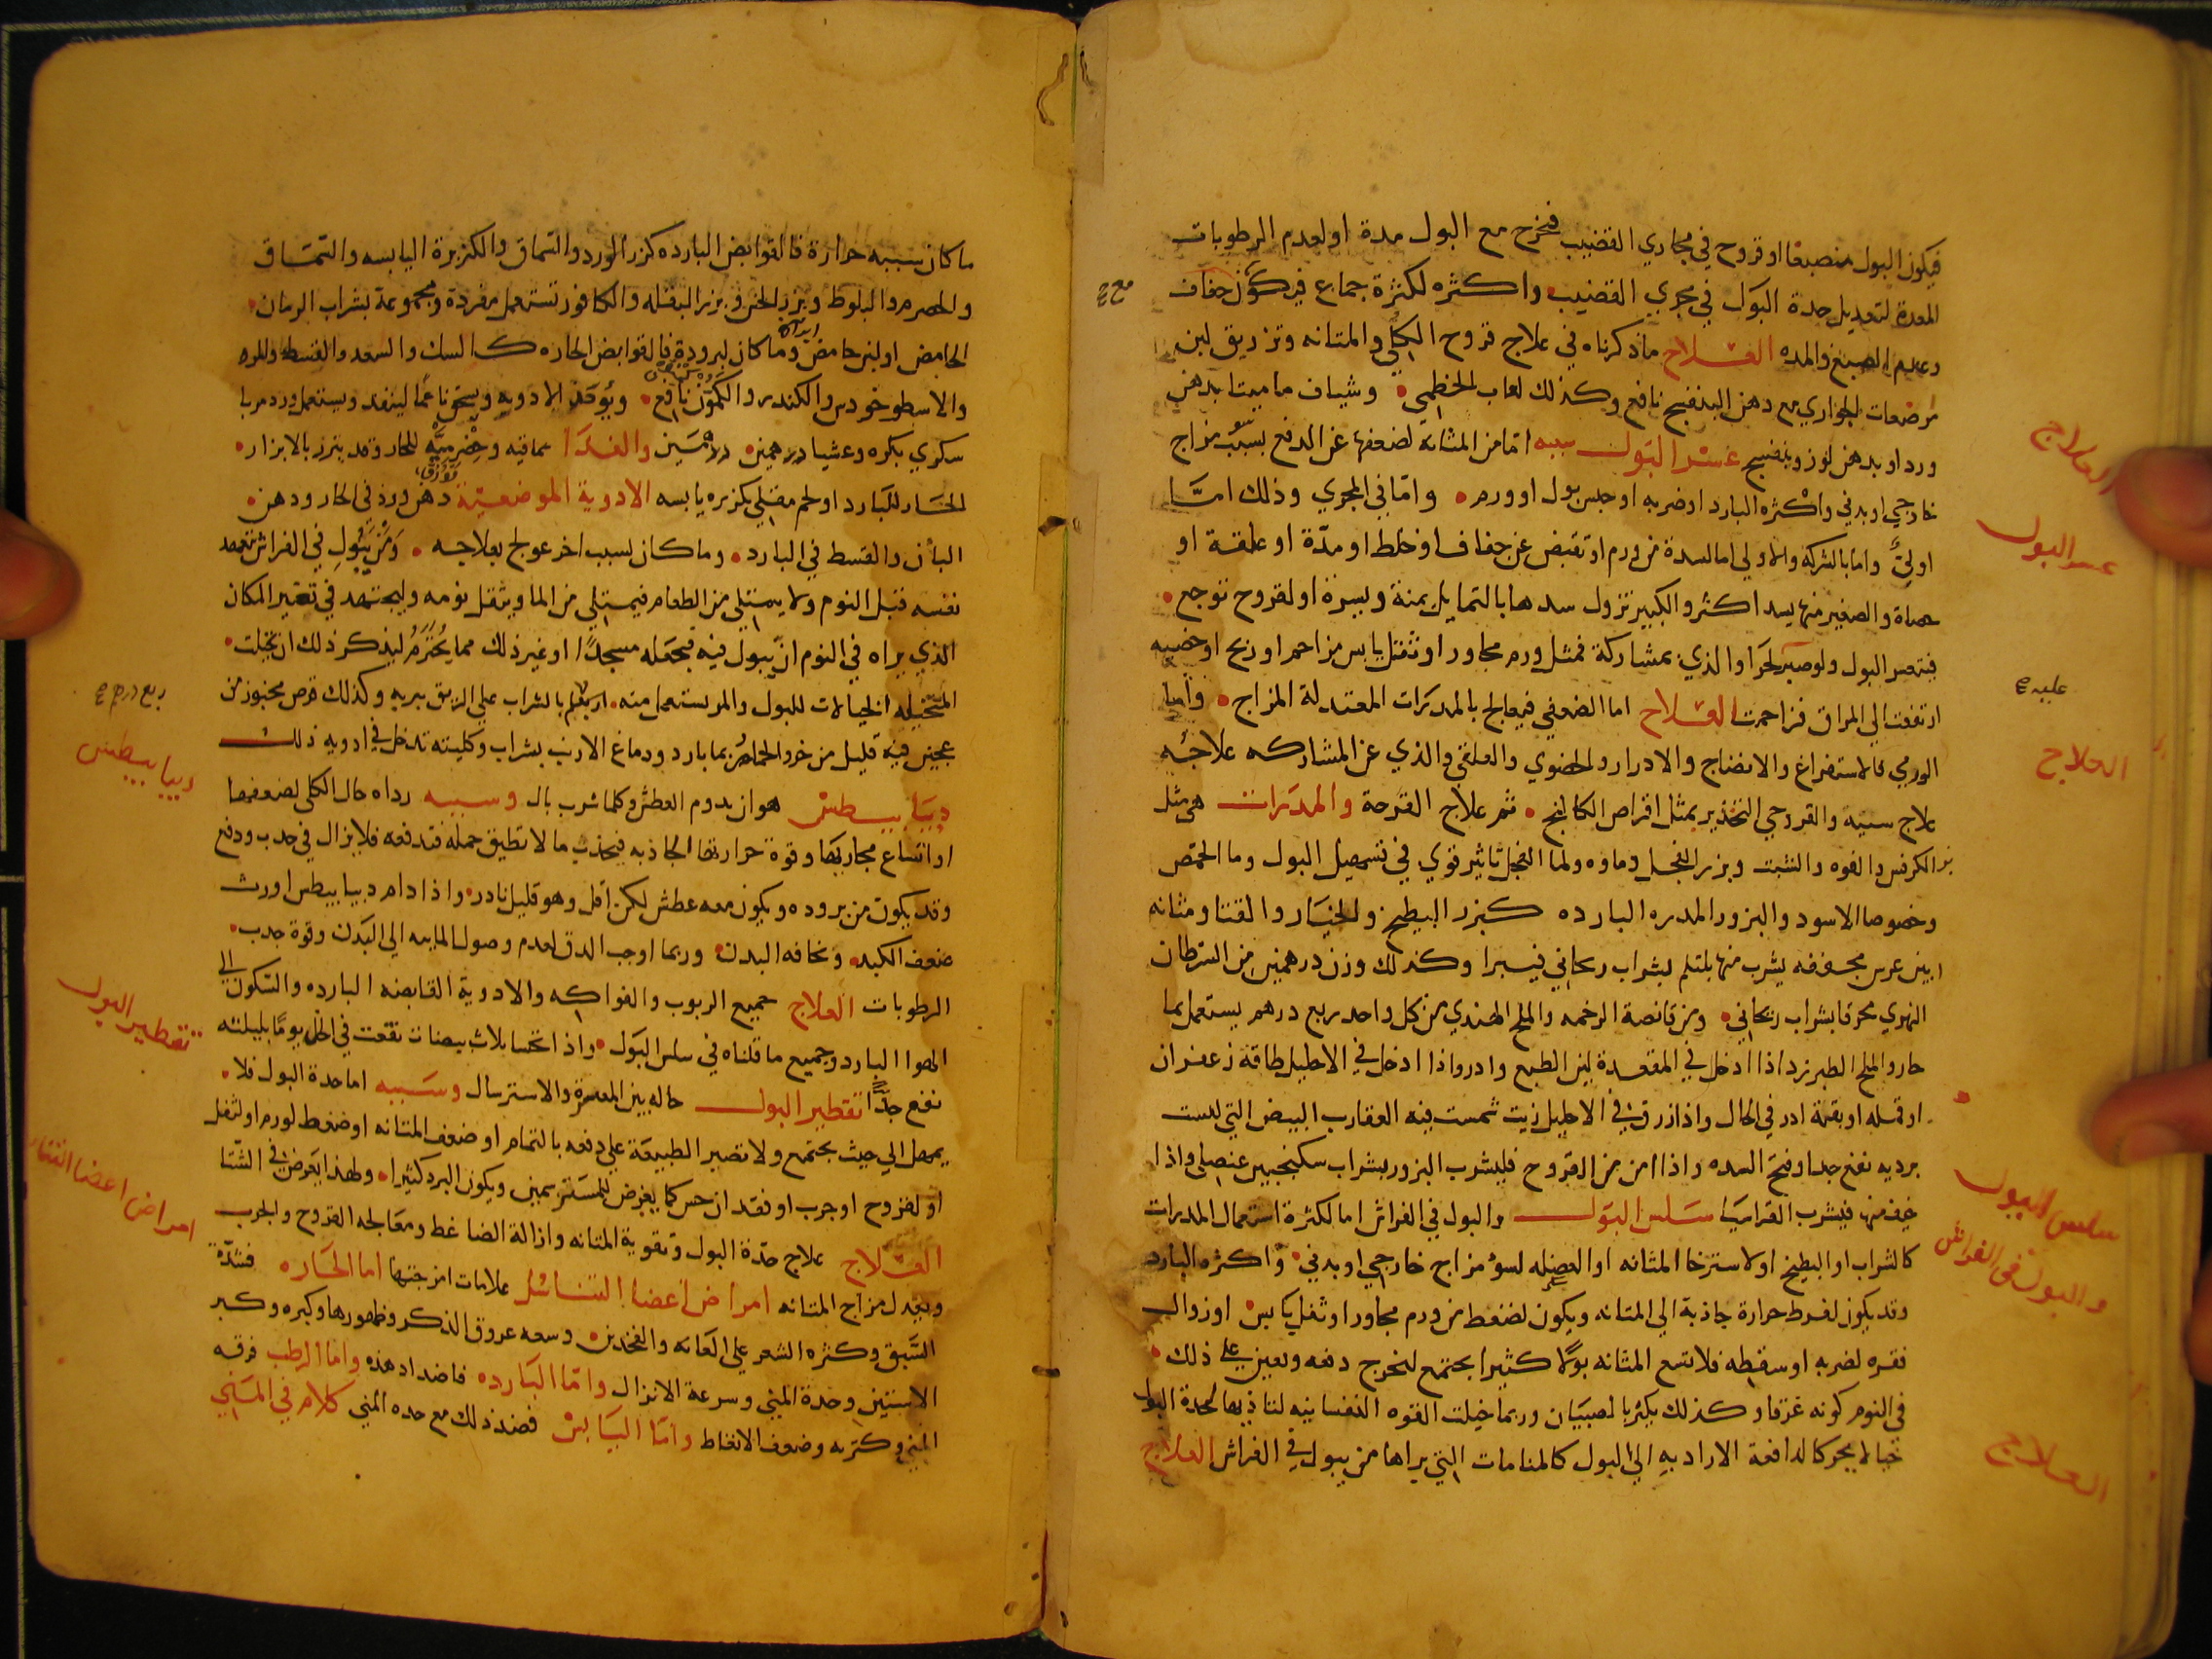 فيكون البول منصبغا او قروح في مجاري القضيب فخرج مع البول مدة او لعدم الرطوبات
المعدة لتعديل حدة البول في مجري القضيب واكثره لكثرة جماع فيكون جفاف
وعدم الصبغ والمده العلاج ماذكرناه في علاج قروح الكلي والمثانه وتزريق لبن
مرضعات الجواري مع دهن البنفسج نافع وكذلك لعاب الخطمي وشياف ماميتا بدهن
ورد او بدهن لوز وبنفسج عسر البول سببه اما من المثانة لضعفها عن الدفع بسبب مزاج
خارجي او بدني واكثره البارد او ضربه او حبس بول او ورم واما في المجري وذلك اما
اولي واما بالشركه والاولي اما لسدة من ورم او تقبض عن جفاف او خلط او مدة او علقة او
حصاة والصغير منها يسد اكثر والكبير تزول سدها بالتمايل يمنة ويسرة او لقروح توجع
فيتعصر البول ولو صبر لجرا والذي بمشاركة فمثل ورم مجاور او ثفل يابس مزاحم او ريح او خصيه
ارتفعت الي المراق فزاحمت العلاج اما الضعفي فيعالج بالمدرات المعتدلة المزاج واما
الورمي فالاستفراغ والانضاج والادرار والحصوي والعلقي والذي عن المشاركه علاجه
علاج سببه والقروحي التخدير بمثل اقراص الكاكنج ثم علاج القرحة والمدرات هي مثل
بزر الكرفس والفوه والشبت وبزر الفجل وماوه ولما الفجل تاثير قوي في تسهيل البول وما الحمص
وخصوصا الاسود والبزور المدره البارده كبزر البطيخ والخيار والقثا ومثانه
ابن عرس مجففه يشرب منها بشراب ريحاني فيبرا وكذلك وزن درهمين من السرطان
النهري محرقا بشراب ريحاني ومن قانصة الرخمه والملح الهندي من كل واحد ربع درهم يستعمل بما
حار والملح الطبرزد اذا ادخل في المقعدة لين الطبع وادر واذا ادخل في الاحليل طاقة زعفران
او قمله او بقة ادر في الحال واذا زرق في الاحليل زيت شمست فيه العقارب البيض التي ليست
برديه نفع جدا وفتح السده واذا امن من القروح فليشرب البزور بشراب سكنجبير عنصلي واذا
خيف منها فيشرب القراسيا سلس البول والبول في الفراش اما لكثرة استعمال المدرات
كالشراب او البطيخ او لاسترخا المثانه او العضله لسؤ مزاج خارجي او بدني واكثره البارد
وقد يكون لفرط حرارة جاذبة الي المثانه ويكون لضغط من ورم مجاور او ثفل يابس او زوال
فقره لضربه او سقطه فلا تسع المثانه بولا كثيرا يجتمع ليخرج دفعه ويعين علي ذلك
في النوم كونه غرقا وكذلك يكثر بالصبيان وربما خيلت القوه النفسانيه لتاذيها لحدة البول
خيالا يحرك الدافعة الاراديه الي البول كالمنامات التي يراها من يبول في الفراش العلاج
العلاج
عسر البول
العلاج
سلس البول
والبول في الفراش
العلاج
ما كان سببه حرارة فالقوابض البارده كزر الورد والسماق والكزبرة اليابسه والسماق
والحصرم والبلوط وبزر الخس وبزر البقله والكافور تستعمل مفردة ومجموعة بشراب الرمان
الحامض او لبن حامض وما كان لبرودة فالقوابض الحاره كالسك والسعد والقسط والمر
والاسطوخودس والكندر والكمون نافع ويؤخذ الادويه ويسحق ناعما لينفذ ويستعمل ورد مربا
سكري بكره وعشيا درهمين والغدا سماقيه وحصرميه للحار وقد يتزر بالابزار
الحار للبارد او لحم مقلي بكزبره يابسه الادوية الموضعية دهن ورد في الحار ودهن
البان والقسط في البارد وما كان لسبب اخر عولج بعلاجه ومن يبول في الفراش تعهد
نفسه قبل النوم ولا يمتلي من الطعام فيمتلي من الما ويثقل نومه وليجتهد في تغير المكان
الذي يراه في النوم ان يبول فيه فيجعله مسجدا او غير ذلك مما يحترم ليذكر ذلك ان تخيلت
المتخيله الخيالات للبول بالشراب علي الريق يبريه وكذلك قرص مخبوز من
عجين فيه قليل من خرو الحمام بما بارد ودماغ الارنب بشراب وكليته تدخل في ادويه ذلك
ديابيطس هو ان يدوم العطش وكلما شرب بال وسببه رداه حال الكلي لضعفها
او اتساع مجاريها وقوة حرارتها الجاذبه فيجذب ما لا تطيق حمله فتدفعه فلا يزال في جدب ودفع
وقد يكون من بروده ويكون معه عطش لكن اقل وهو قليل نادر واذا دام ديابيطس اورث
ضعف الكبد ونحافه البدن وربما اوجب الدق لعدم وصول المايه الي البدن وقوة جدب
الرطوبات العلاج جميع الربوب والفواكه والادوية القابضه البارده والسكون الي
الهوا البارد وجميع ما قلناه في سلس البول واذا تحسا ثلاث بيضات نقعت في الخل يوما بليلته
نفع جدا تقطير البول حاله بين العسر والاسترسال وسببه اما حدة البول فلا
يمهل الي حيث يجتمع ولا تصبر الطبيعة علي دفعه بالتمام او ضعف المثانه او ضغط لورم او لثفل
او لقروح او جرب او فقدان حس كما يعرض للمبرسمين ويكون البرد كثيرا ولهذا يعرض في الشتا
العلاج علاج حدة البول وتقوية المثانه وازالة الضاغط ومعالجه القروح والجرب
وتعدل مزاج المثانه امراض اعضا التناسل علامات امزجتها اما الحاره فشدة
الشبق وكثره الشعر علي العانه والفخدين وسعه عروق الذكر وظهورها وكبره وكبر
الانثيين وحدة المني وسرعة الانزال واما البارده فاضداد هذه واما الرطب فرقه
المني وكثره وضعف الانعاظ واما اليابس فضد ذلك مع حده المني كلام في المني
ديابيطس
تقطير البول
امراض اعضا التناسل